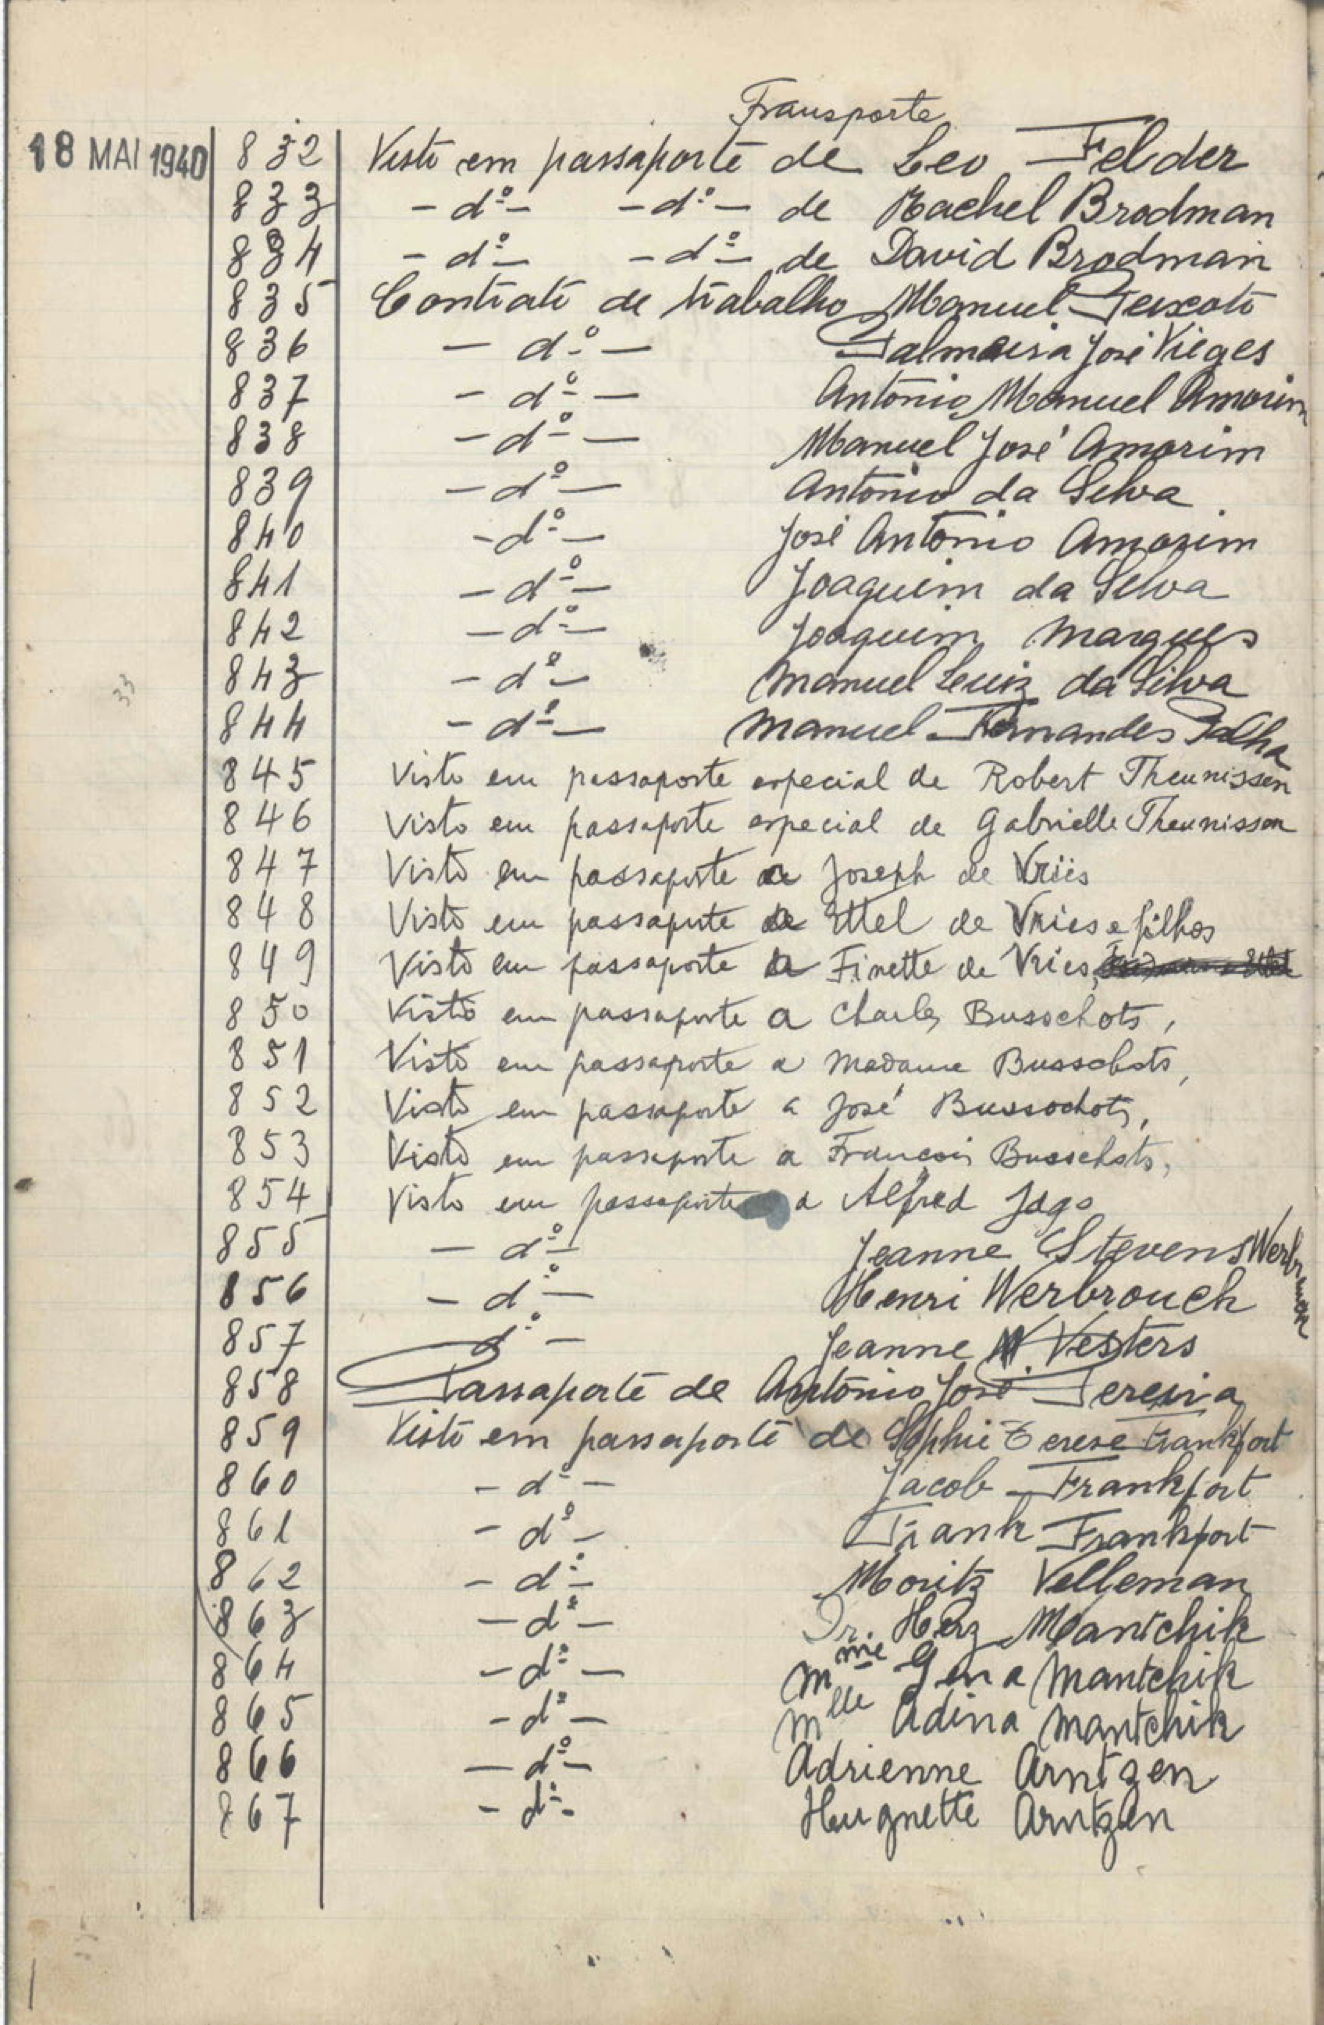 Transporte
18 MAI 1940 832 Visto em passaporte de Leo Felder
833 - dº - - dº - de Rachel Brodman
834 - dº - - dº - de David Brodman
835 Contrato de trabalho Manuel Peixoto
836 - dº - Palmeira José Vieges
837 - dº - António Manuel Amorim
838 - dº - Manuel José Amorim
839 - dº - António da Silva
840 - dº - José António Amorim
841 - dº - Joaquim da Silva
842 - dº - Joaquim Marques
843 - dº - Manuel Luiz da Silva
844 - dº - Manuel Fernandes Palha
845 Visto em passaporte especial de Robert Theunissen
846 Visto em passaporte especial de Gabrielle Theunissen
847 Visto em passaporte de Joseph de Vriis
848 Visto em passaporte de Ettel de Vries e filhos
849 Visto em passaporte a Finette de Vries,
850 Visto em passaporte a Charles Busschots,
851 Visto em passaporte a Madame Busschots,
852 Visto em passaporte a José Bussochots,
853 Visto em passaporte a François Busschots,
854 Visto em passaporte a Alfred Jago
855 - dº - Jeanne Stevens Werbrouck
856 - dº - Henri Werbrouck
857 dº - Jeanne Vesters
858 Passaporte de António José Pereira
859 Visto em passaporte de Sophie Terese Frankfort
860 - dº - Jacob Frankfort
861 - dº - Frank Frankfort
862 - dº - Moritz Velleman
863 - dº - Dr. Herz Mantchik
864 - dº - Mme Gena Mantchik
865 - dº - Mlle Adina Mantchik
866 - dº - Adrienne Arntzen
867 - dº - Huguette Arntzen
33